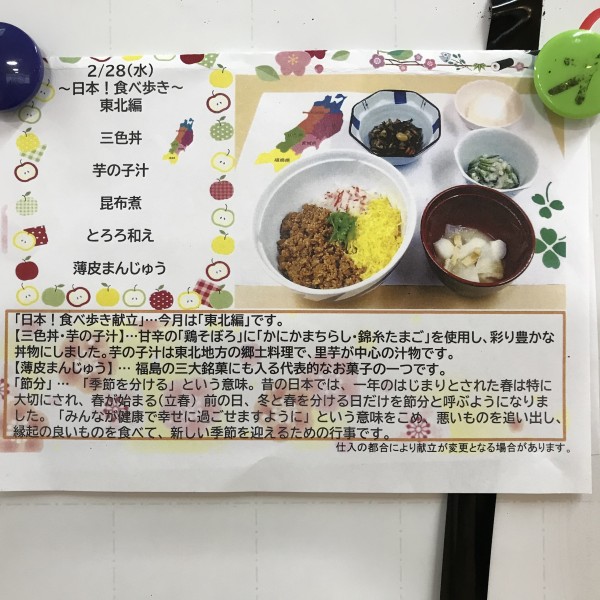 2/28(水)
～日本！食べ歩き～
東北編
三色丼
芋の子汁
昆布煮
とろろ和え
薄皮まんじゅう
「日本！食べ歩き献立」…今月は「東北編」です。
【三色丼・芋の子汁】…甘辛の「鶏そぼろ」に「かにかまちらし・錦糸たまご」を使用し、彩り豊かな
丼物にしました。芋の子汁は東北地方の郷土料理で、里芋が中心の汁物です。
【薄皮まんじゅう】… 福島の三大銘菓にも入る代表的なお菓子の一つです。
「節分」… 「季節を分ける」という意味。昔の日本では、一年のはじまりとされた春は特に
大切にされ、春が始まる（立春）前の日、冬と春を分ける日だけを節分と呼ぶようになりま
した。「みんなが健康で幸せに過ごせますように」という意味をこめ、悪いものを追い出し、
縁起の良いものを食べて、新しい季節を迎えるための行事です。
仕入の都合により献立が変更となる場合があります。